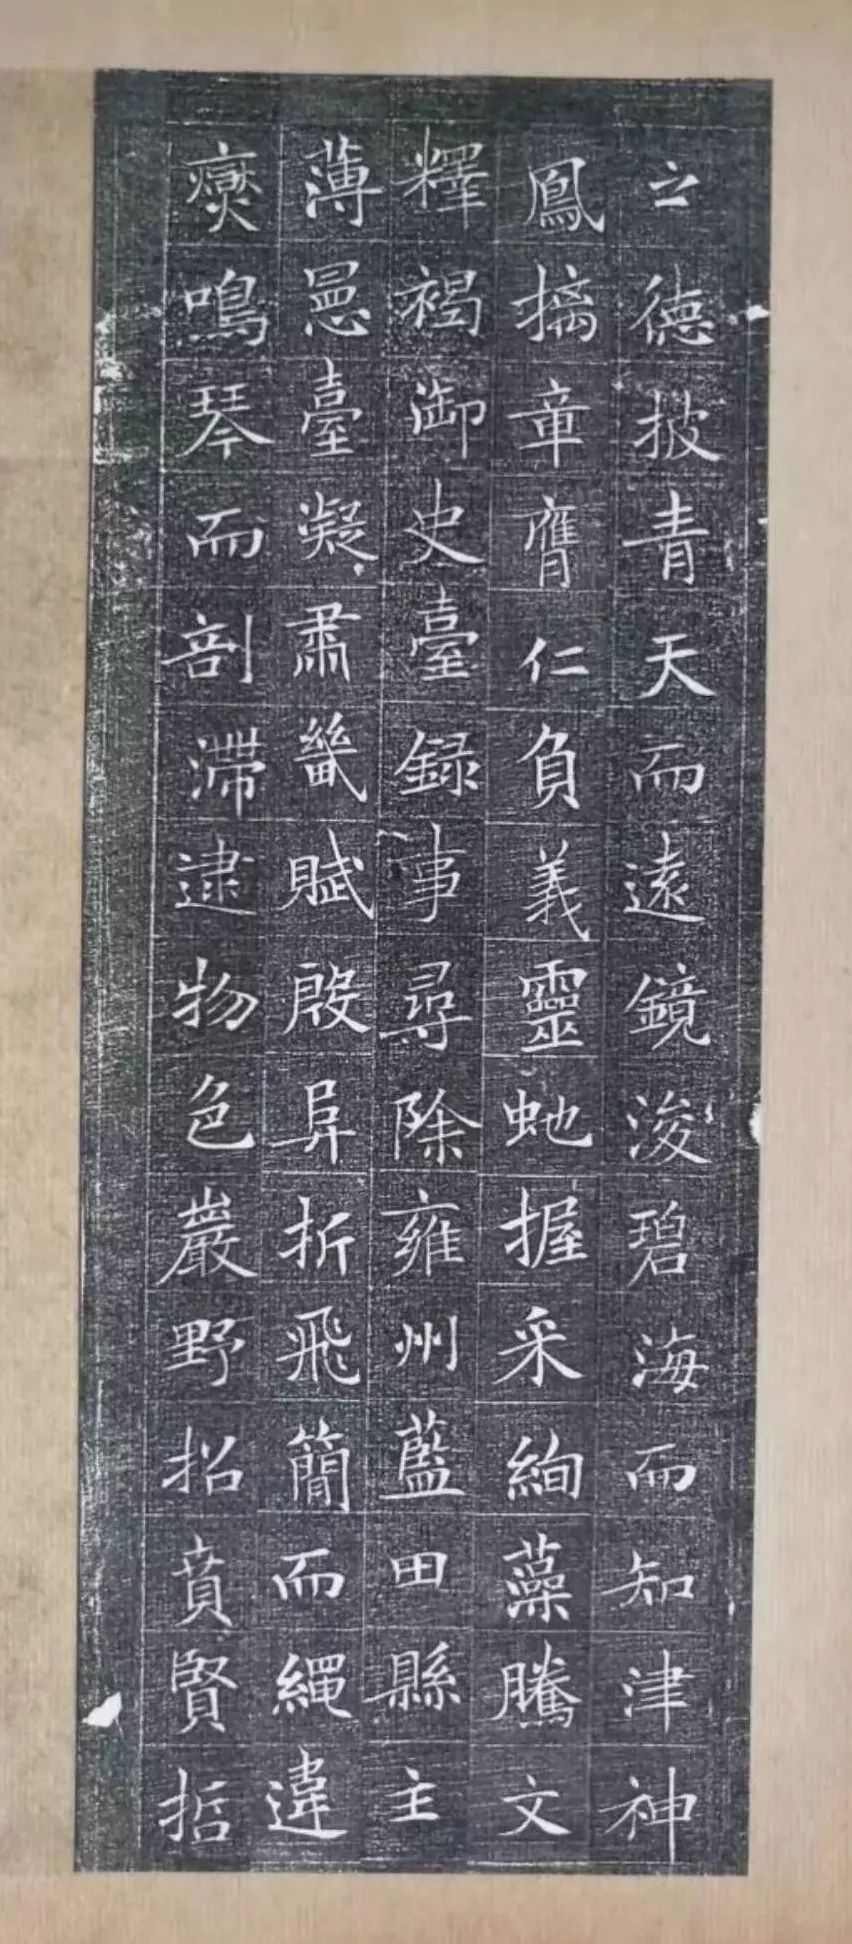 之德披青天而遠鏡浚碧海而知津神
鳳摛章膺仁負義靈虵握采絢藻騰文
釋褐御史臺錄事尋除雍州藍田縣主
薄臺凝肅畿賦殷阜折飛簡而繩違
鳴琴而剖滯逮物色巖野招賁賢哲